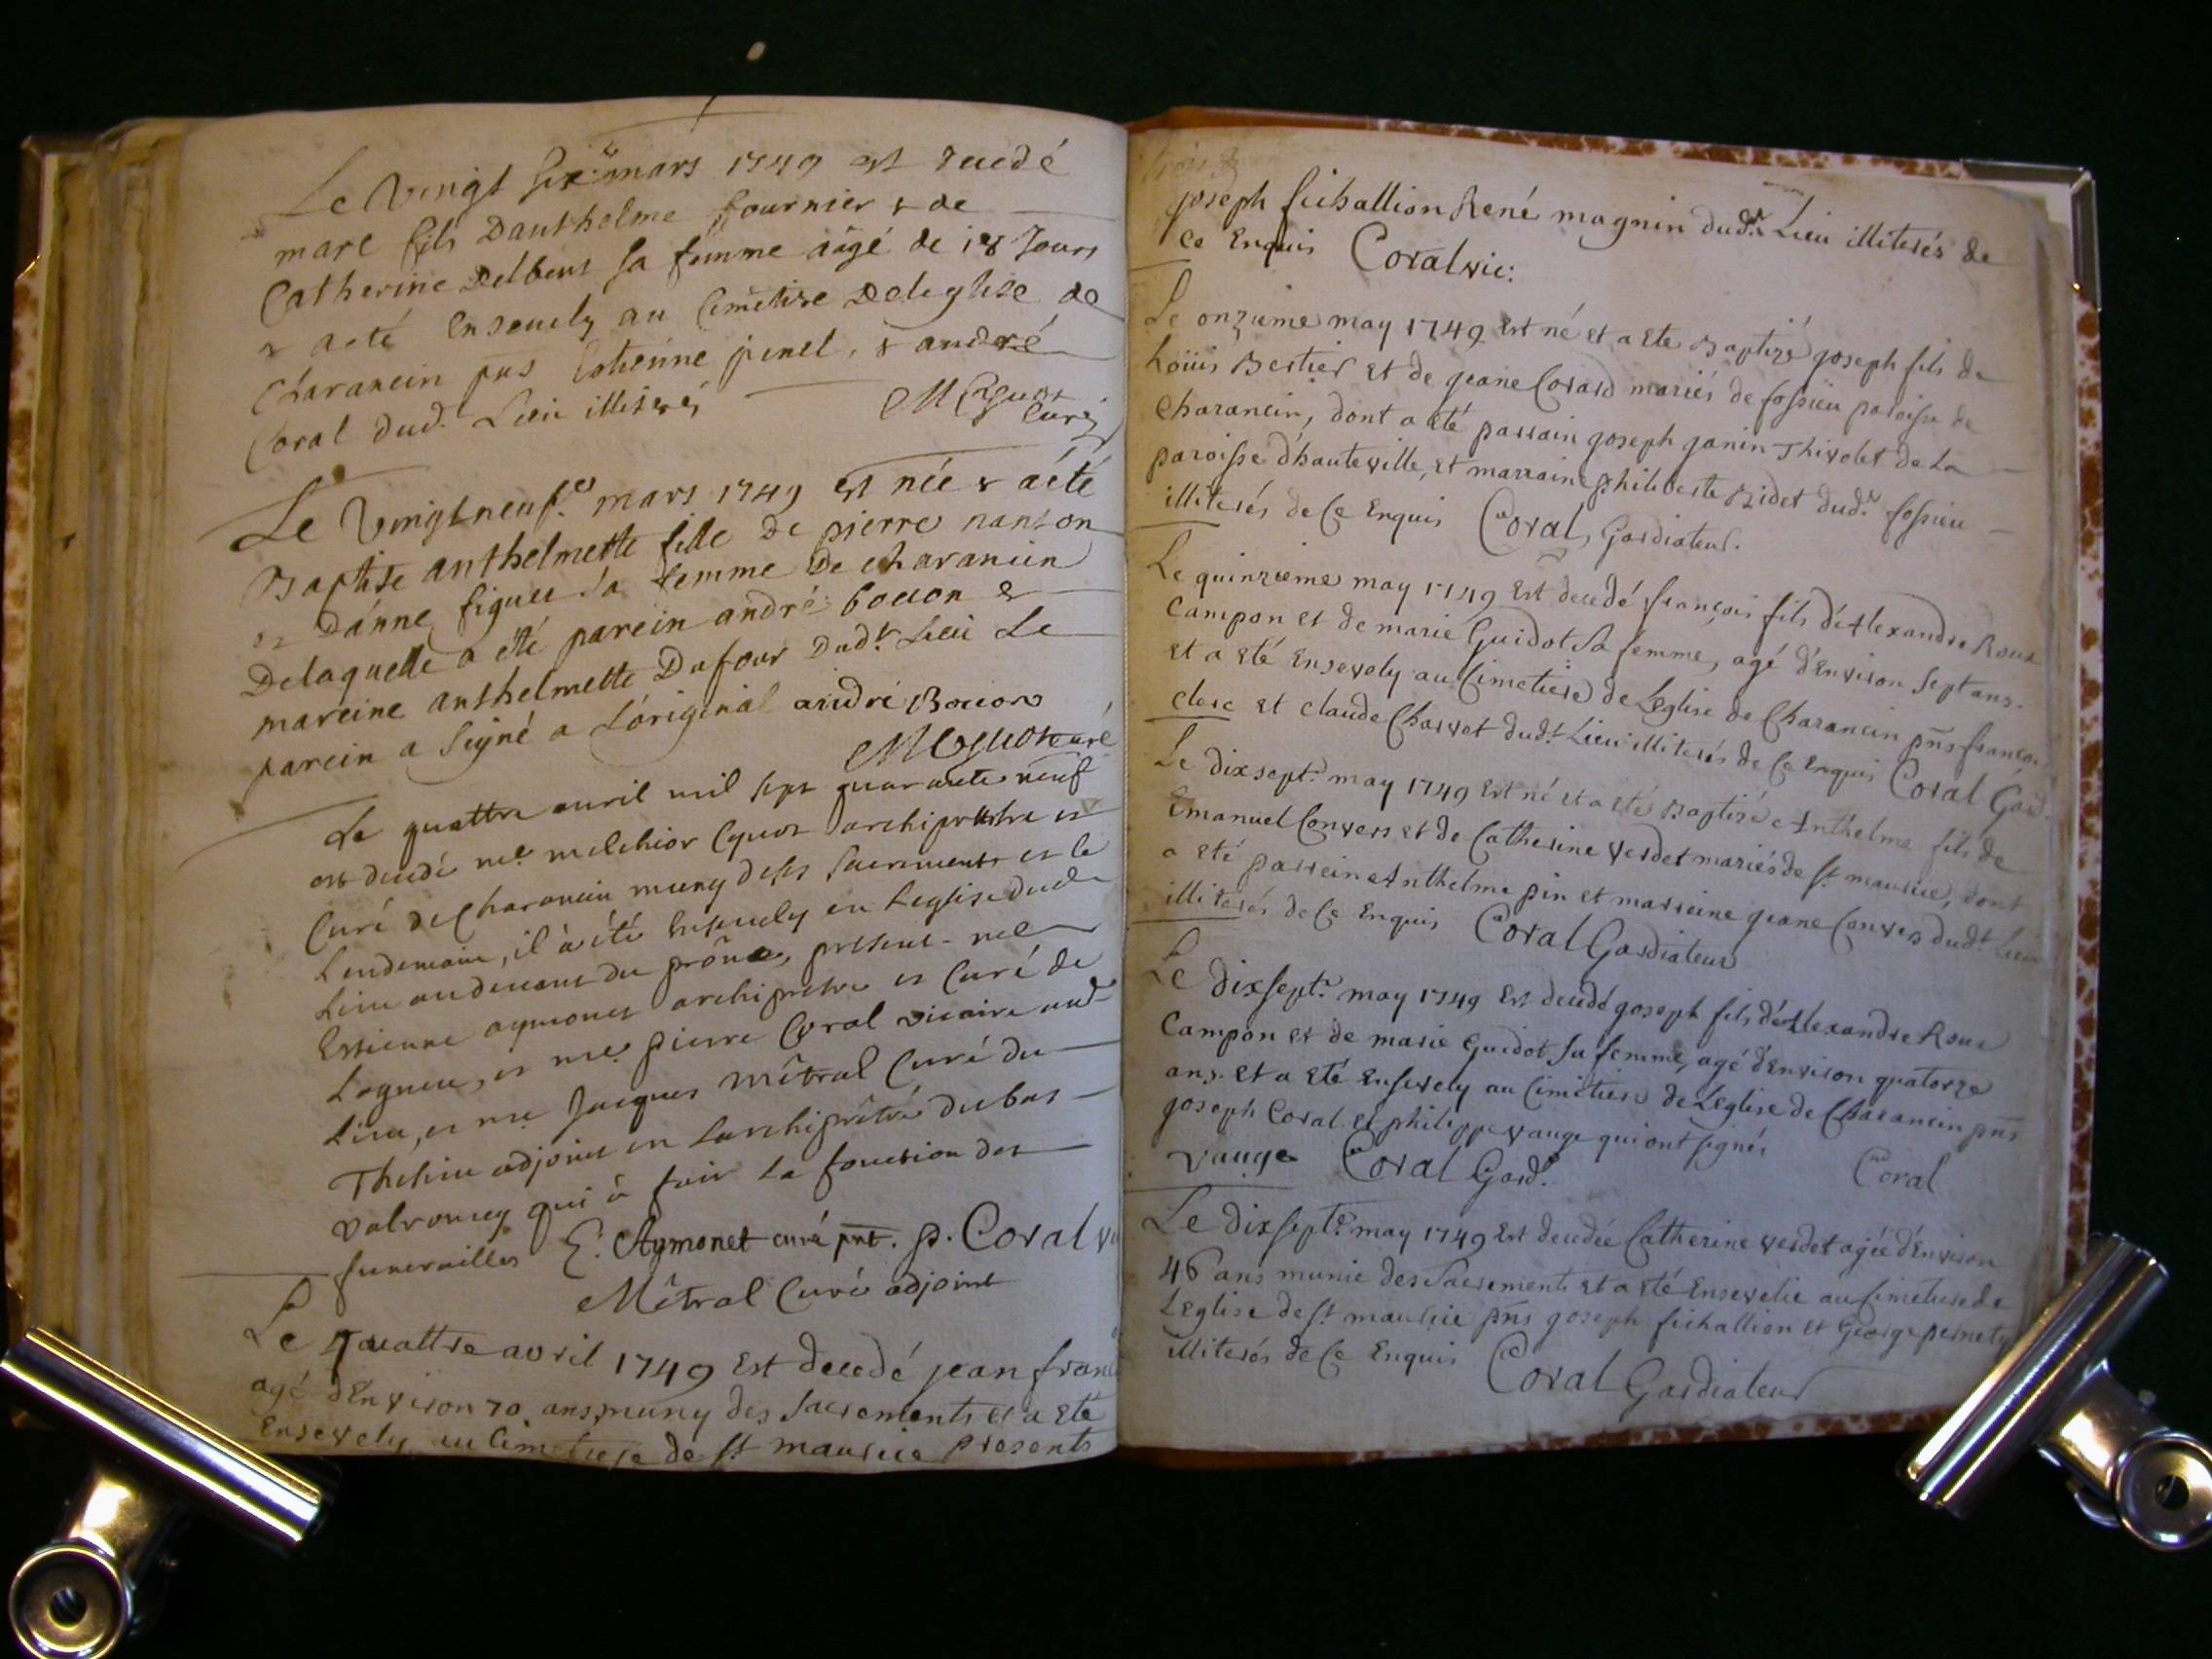 Le vingt six.e mars 1749 est decedé
marc fils Danthelme fournier & de
Catherine Delbeut sa femme aâgé de 18 Jours
& aeté Ensevely au Cimetire Deleglise de
Charancin pns Estienne pinel, & andré
Coral dud.t Lieu illiterés
MCyuot
Curé
Le Vingtneuf.e mars 1749 est née & aété
Baptise anthelmette fille De pierre nanton
et Danne figuet sa femme De charancin
Delaquelle a été parein andré bocon &
mareine anthelmette Dufour Dud.t Lieu Le
parein a Signé a Loriginal andré Bocion
MCyuot curé
Le quattre avril mil sept quarante neuf
est decedé m.e melchior Cyuot archiprestre et
Curé de Charancin muny de ses sacrements et le
Lendemain, il à été Ensevely en Leglise dud.
Lieu audevant du prône, present m.e
Estienne aymonet archiprestre et Curé de
Lagnieu, et m.e pierre Coral vicaire aud.
Lieu, et m.e Jacques Métral Curé du
Thesieu adjoint en Larchiprêtré dubas
valromey qui à fait la fonction des
funerailles E. Aymonet curé pnt. p. Coral vi
Mêtral Curé adjoint
Le quattre avril 1749 Est decedé jean fran
agé dEnviron 70 ans muny des Sacrements et a Eté
Ensevely au Cimetiere de S.t maurice presents
joseph fichallion René magnin dud.t Lieu illiterés de
Ce Enquis Coral vic:
Le onzieme may 1749 Est né et a Ete Baptizé joseph fils de
Loüis Bertier et de jeane Corard mariés de fossieu paroisse de
Charancin, dont a eté parrain joseph janin Thivolet de La
paroisse d'hauteville, et marraine philiberte Bidet dud.t fossieu
illiterés de Ce Enquis Coral, Gardiateur.
Le quinzieme may 1749 Est decedé françois fils d'Alexandre Roux
Campon et de marie Guidot Sa femme, agé d'Environ sept ans.
et a eté Ensevely au Cimetiere de Leglise de Charancin pns françois
clerc et claude Charvet dud.t Lieu illiterés de Ce Enquis Coral Gard.
Le dixsept.e may 1749 Est né et a eté Baptisé Anthelme fils de
Emanuel Convers et de Catherine Verdet mariés de St maurice, dont
a eté parrein Anthelme pin et marreine jeane Convers dud.t Lieu
illiterés de Ce Enquis Coral Gardiateur
Le dixsept.e may 1749 Est decedé joseph fils d'Alexandre Roux
Campon et de marie Guidot Sa femme, agé d'Environ quatorze
ans. Et a eté Ensevely au Cimetiere de Leglise de Charancin pns
joseph Coral et philippe vauge qui ont signés
vauge Coral Gard.r Coral
Le dixsept.e may 1749 Est decedée Catherine verdet agée d'Environ
46 ans munie des Sacrements et a eté Ensevelie au Cimetiere de
Leglise de St maurice pns joseph fichallion et George pernety
illiterés de Ce Enquis Coral Gardiateur